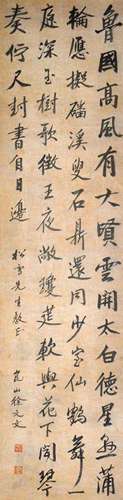 魯國高風有大賢雲開太白德星懸蒲
輪應擬磻溪叟石鼎還同少室仙鶴舞一
庭深玉樹歌徵五夜敞瓊莚軟輿花下聞琴
奏佇尺封書自日邊
松雪先生教正
崑山徐元文